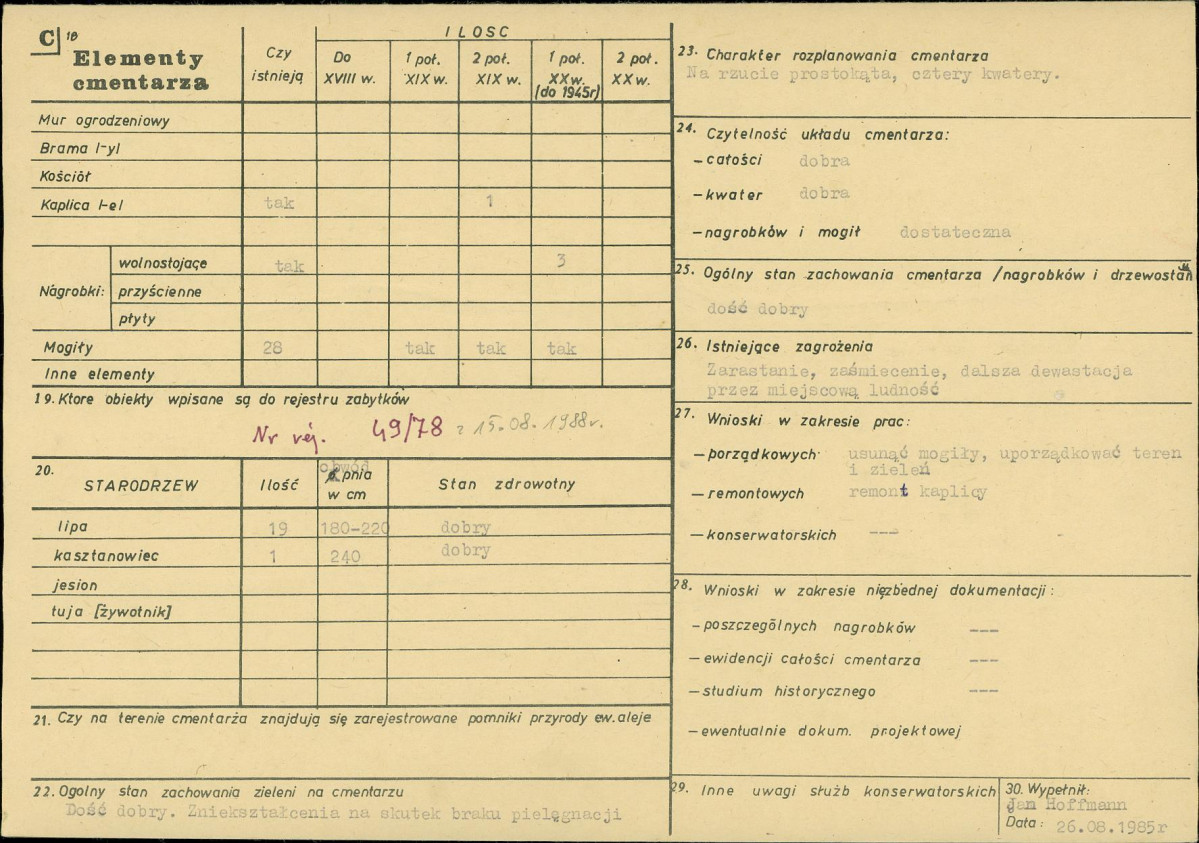 C 18
Elementy
cmentarza
Czy
istnieją
ILOSC
Do
XVIII w.
1 poł.
XIX w.
2 poł.
XIX w.
1 poł.
XX w.
(do 1945r)
2 poł.
XX w.
Mur ogrodzeniowy
Brama I-yl
Kościół
Kaplica I-el tak 1
Nagrobki:
wolnostojące tak 3
przyścienne
płyty
Mogiły 28 tak tak tak
Inne elementy
19. Ktore obiekty wpisane są do rejestru zabytków
Nr rej. 49/78 z 15.08.1988r.
20.
STARODRZEW
Ilość
obwód
pnia
w cm
Stan zdrowotny
lipa 19 180-220 dobry
kasztanowiec 1 240 dobry
jesion
tuja [żywotnik]
21. Czy na terenie cmentarża znajdują się zarejestrowane pomniki przyrody ew. aleje
22. Ogolny stan zachowania zieleni na cmentarzu
Dość dobry. Zniekształcenia na skutek braku pielęgnacji
23. Charakter rozplanowania cmentarza
Na rzucie prostokąta, cztery kwatery.
24. Czytelność układu cmentarza:
-całości dobra
-kwater dobra
-nagrobków i mogił dostateczna
25. Ogólny stan zachowania cmentarza /nagrobków i drzewostan
dość dobry
26. Istniejące zagrożenia
Zarastanie, zaśmiecenie, dalsza dewastacja
przez miejscową ludność
27. Wnioski w zakresie prac:
-porządkowych usunąć mogiły, uporządkować teren
i zieleń
-remontowych remont kaplicy
-konserwatorskich ---
28. Wnioski w zakresie niezbednej dokumentacji:
-poszczególnych nagrobków ---
-ewidencji całości cmentarza ---
-studium historycznego ---
-ewentualnie dokum. projektowej
29. Inne uwagi służb konserwatorskich
30. Wypełnił:
Jan Hoffmann
Data: 26.08.1985r